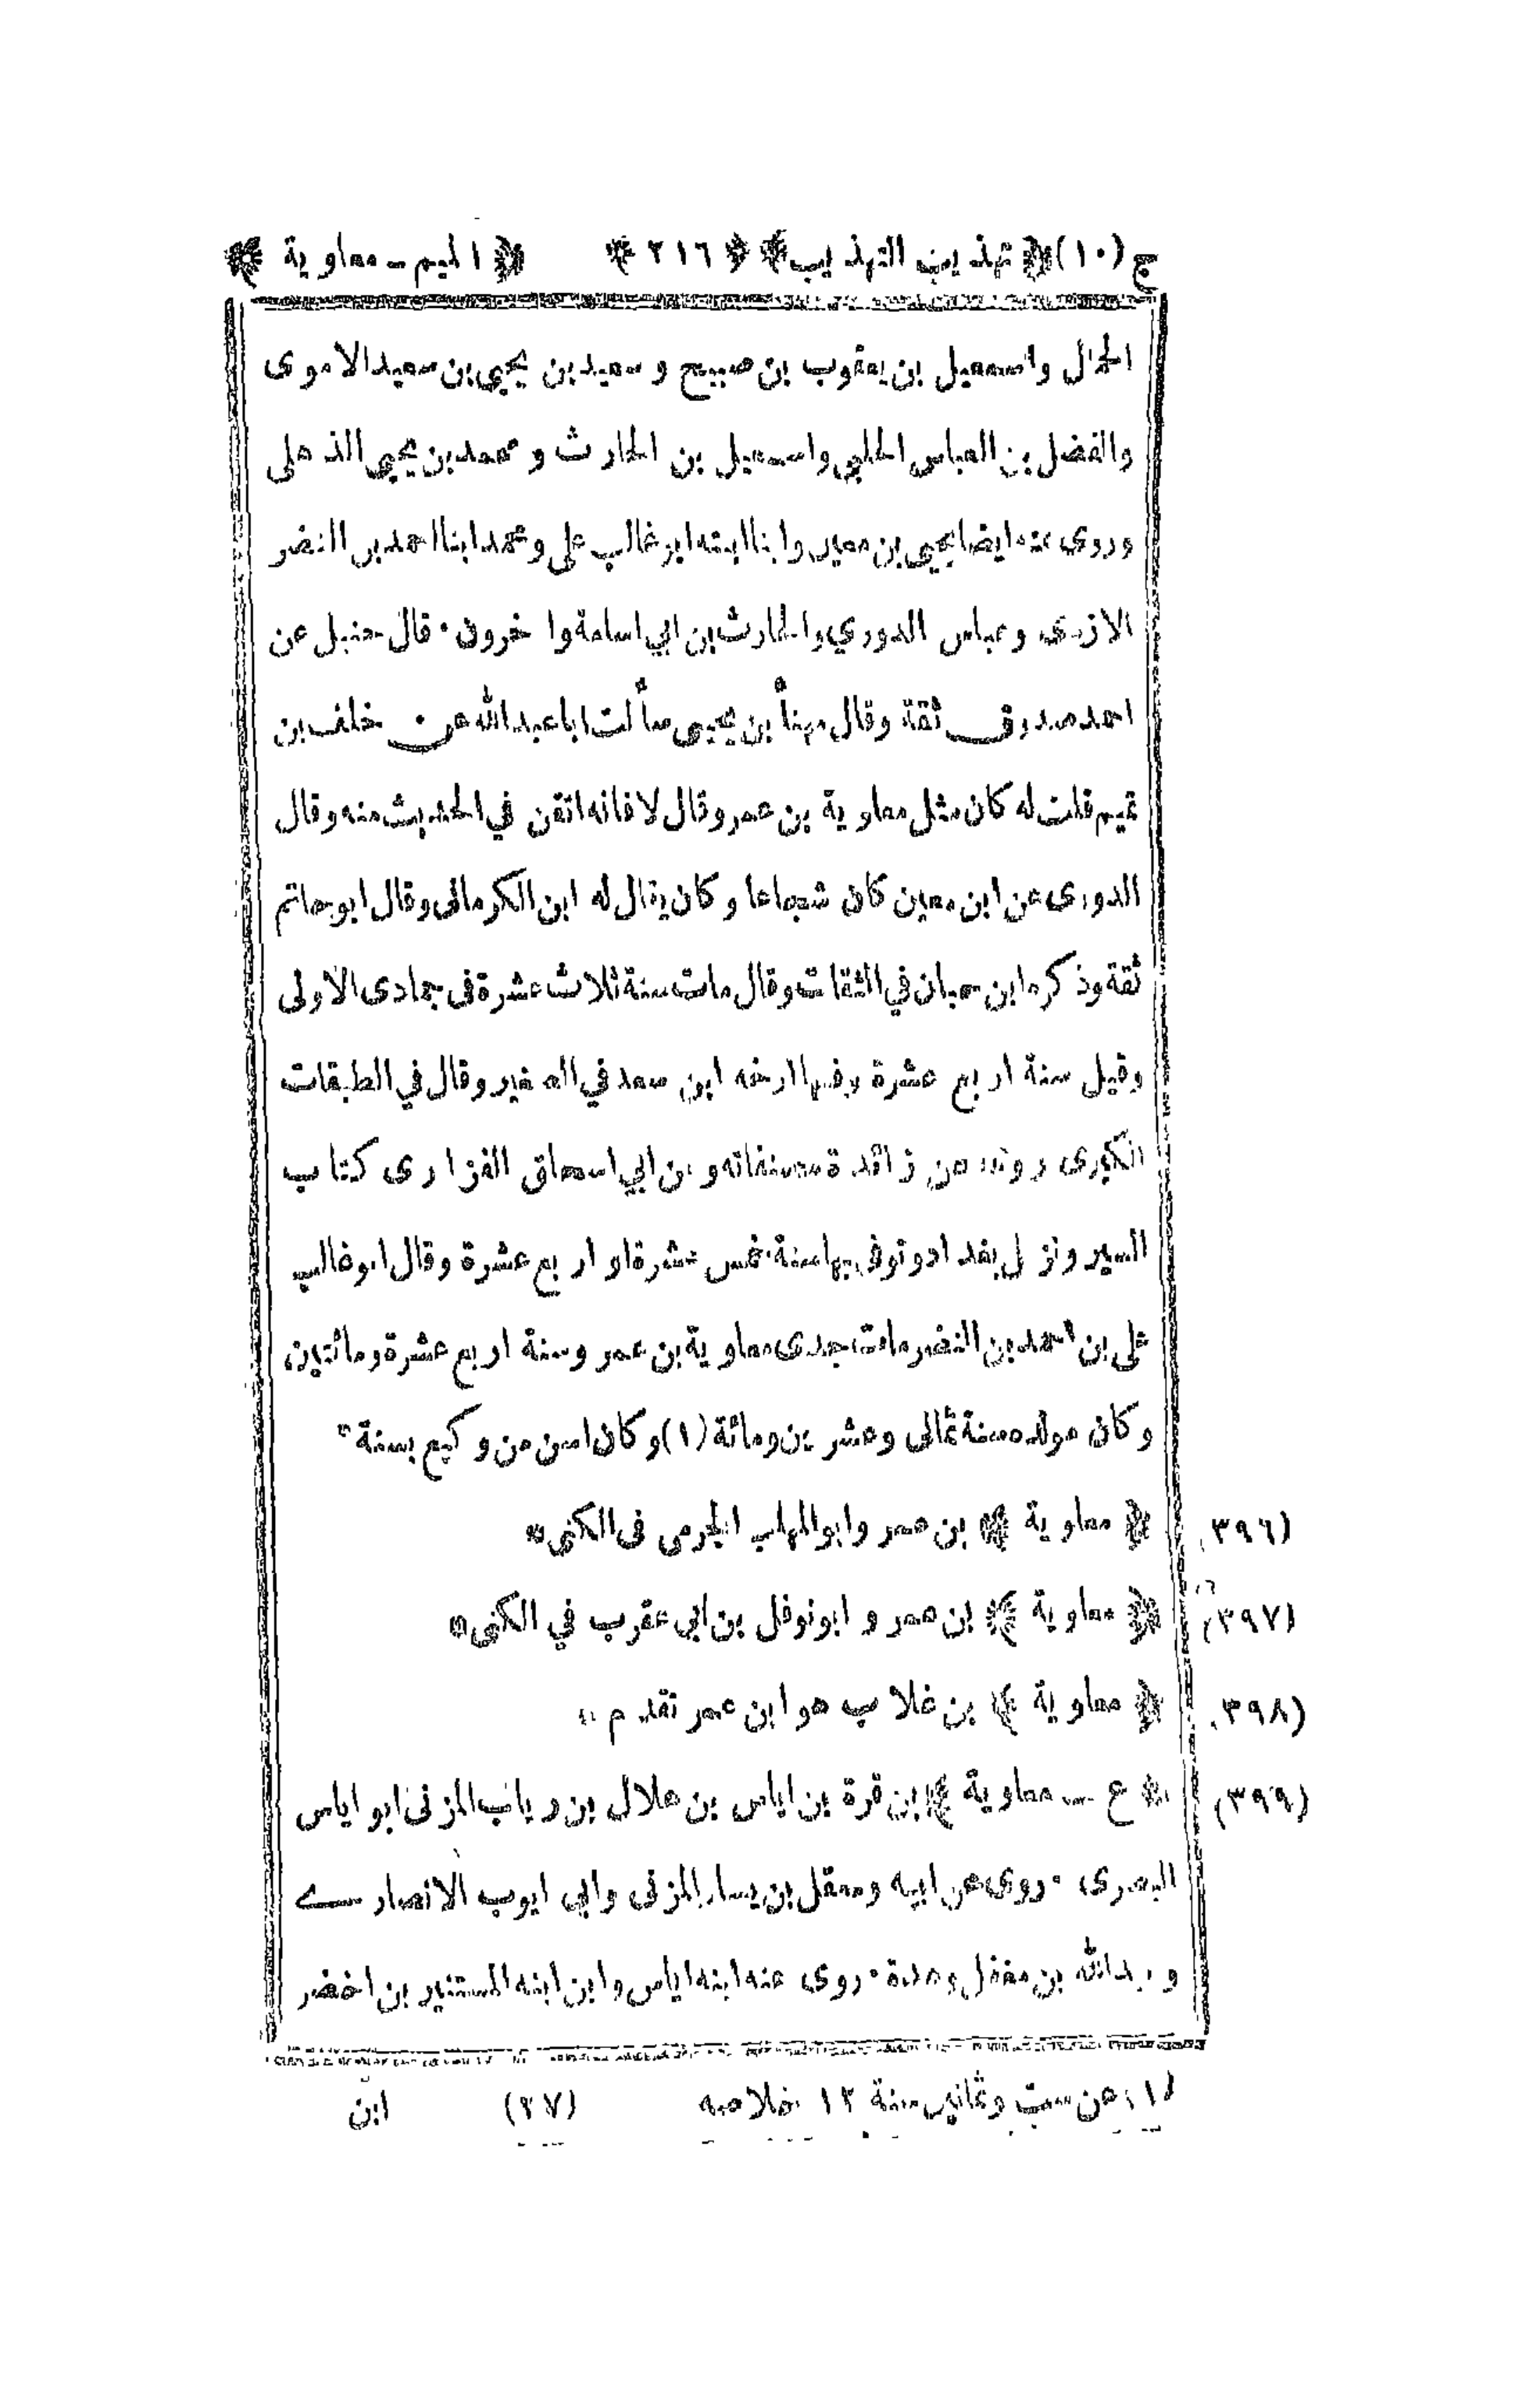 ج (١٠) ﴿ تهذيب التهذيب ﴾ ﴿ ٢١٦ ﴾ ﴿ الميم - معاوية ﴾
الحمال واسمعيل بن يعقوب بن صبيح وسعيد بن يحيى بن سعيد الاموى
والفضل بن العباس الحلبي واسمعيل بن الحارث ومحمد بن يحيى الذهلى
وروى عنه ايضا يحيى بن معين وابنا ابنته ابو غالب على ومحمد ابنا احمد بن النضر
الازدى وعباس الدوري والحارث بن ابي اسامة واخرون · قال حنبل عن
احمد صدوق ثقة وقال مهنأ بن يحيى سألت ابا عبدالله عن خلف بن
تميم قلت له كان مثل معاوية بن عمرو قال لا فانه اتقن في الحديث منه وقال
الدورى عن ابن معين كان شجاعا وكان يقال له ابن الكرمانى وقال ابو حاتم
ثقة وذكره ابن حبان في الثقات وقال مات سنة ثلاث عشرة فى جمادى الاولى
وقيل سنة اربع عشرة وفيها ارخه ابن سعد في الصغير وقال في الطبقات
الكبرى روى عن زائدة مصنفاته وعن ابي اسحاق الفزارى كتاب
السير ونزل بغداد وتوفى بها سنة خمس عشرة او اربع عشرة وقال ابو غالب
على بن احمد بن النضر مات جدى معاوية بن عمرو سنة اربع عشرة ومائتين
وكان مولده سنة ثمانى وعشرين ومائة (١) وكان اسن من وكيع بسنة *
(٣٩٦) ﴿ معاوية ﴾ بن عمرو ابو المهلب الجرمى فى الكنى *
(٣٩٧) ﴿ معاوية ﴾ بن عمرو ابو نوفل بن ابي عقرب في الكنى *
(٣٩٨) ﴿ معاوية ﴾ بن غلاب هو ابن عمرو تقدم *
(٣٩٩) ﴿ ع - معاوية ﴾ بن قرة بن اياس بن هلال بن رياب المزنى ابو اياس
البصرى · روى عن ابيه ومعقل بن يسار المزنى وابى ايوب الانصارى
وعبدالله بن مغفل وعدة · روى عنه ابنه اياس وابن ابنه المستنير بن اخضر
(١) عن ست وثمانين سنة ١٢ خلاصه (٢٧) ابن